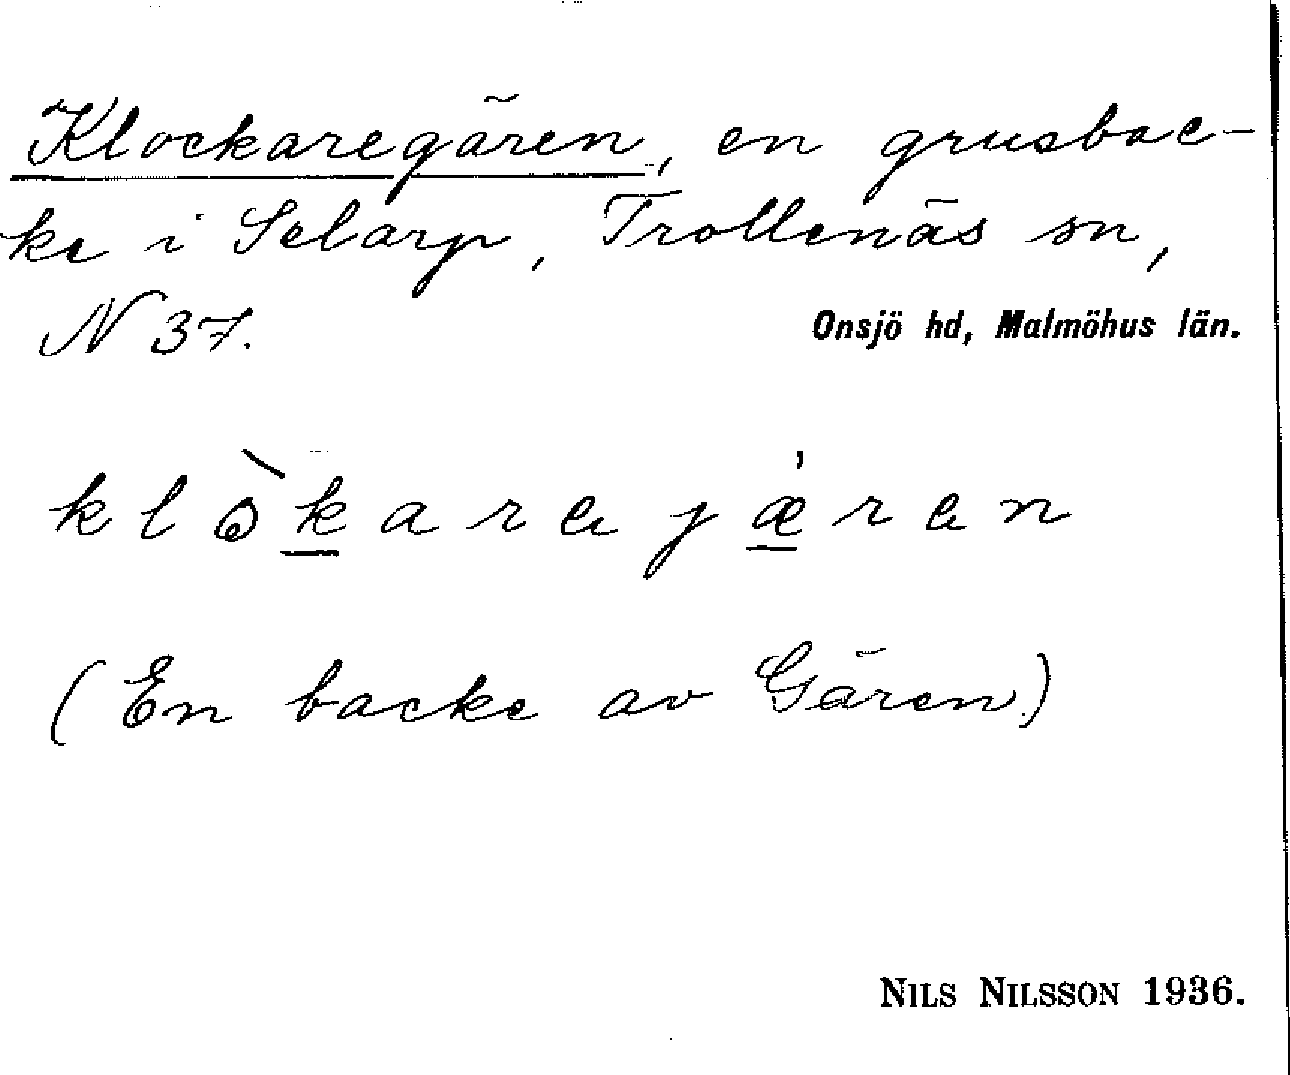 Klockaregären, en grusbac-
ke i Selarp, Trollenäs sn,
N 37. Onsjö hd, Malmöhus län.
klɔ̀karejǽren
(En backe av Gären)
NILS NILSSON 1936.